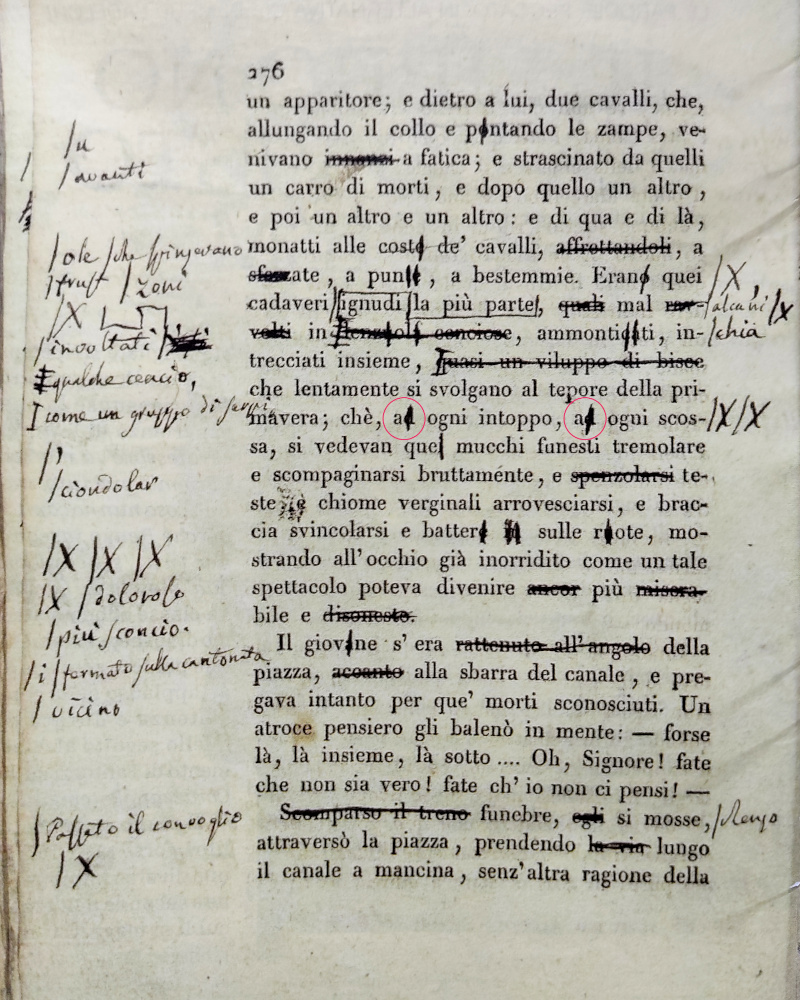 276
un apparitore; e dietro a lui, due cavalli, che,
allungando il collo e pontando le zampe, ve-
nivano innanzi a fatica; e strascinato da quelli
un carro di morti, e dopo quello un altro,
e poi un altro e un altro: e di qua e di là,
monatti alle coste de' cavalli, affrettandoli, a
sferzate, a punte, a bestemmie. Erano quei
cadaveri ignudi la più parte, quali mal
volti in conciose, ammonticchiati, in-
trecciati insieme, quasi un viluppo di bisce
che lentamente si svolgano al tepore della pri-
mavera; chè, ad ogni intoppo, ad ogni scos-
sa, si vedevan quei mucchi funesti tremolare
e scompaginarsi bruttamente, e spenzolarsi te-
ste, e chiome verginali arrovesciarsi, e brac-
cia svincolarsi e battere sulle ruote, mo-
strando all' occhio già inorridito come un tale
spettacolo poteva divenire ancor più misera-
bile e disonesto.
Il giovane s' era rattenuto all' angolo della
piazza, accanto alla sbarra del canale, e pre-
gava intanto per que' morti sconosciuti. Un
atroce pensiero gli balenò in mente: — forse
là, là insieme, là sotto .... Oh, Signore! fate
che non sia vero! fate ch' io non ci pensi! —
Scomparso il treno funebre, egli si mosse,
attraversò la piazza, prendendo la via lungo
il canale a mancina, senz' altra ragione della
/u
/avanti
/ole /che spingevano
/frust /zoni
/X
/involtati
qualche cencio,
come un gruppo di serpi
/ciondolar
/X /X /X
/X /dolorolo
/più /sconcio.
/i /fermato sulla cantonata
/vicino
/Passato il convoglio
/X
/X,
/alcuni /X
/chia
/X/X
/Renzo